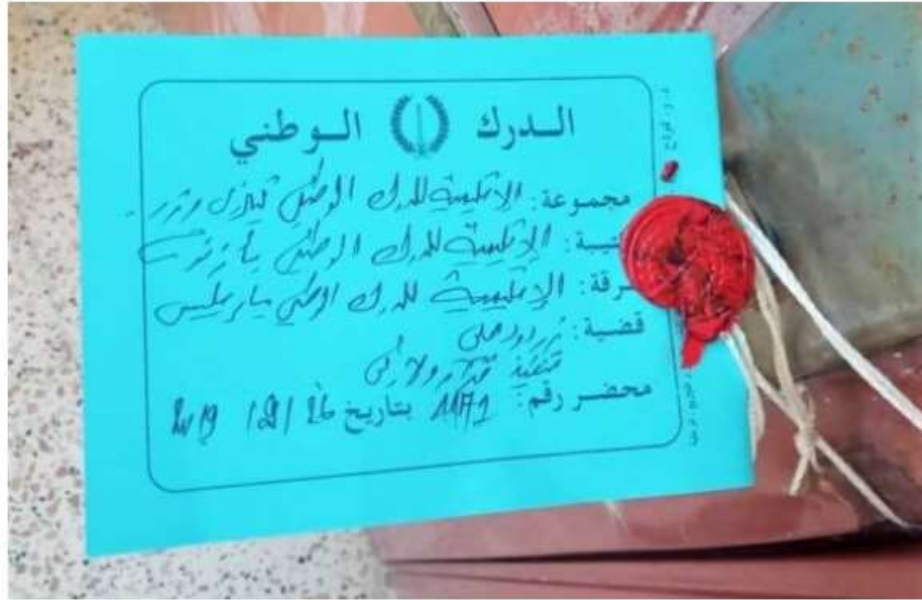 الـدرك الـوطني
مجموعة: الإقليمية للدرك الوطني تيزي وزو
يبة: الإقليمية للدرك الوطني
رقة: الإقليمية للدرك الوطني
قضية:
تنفيذ قرار ولائي
محضر رقم: 1171 بتاريخ 26 / 12 / 2019